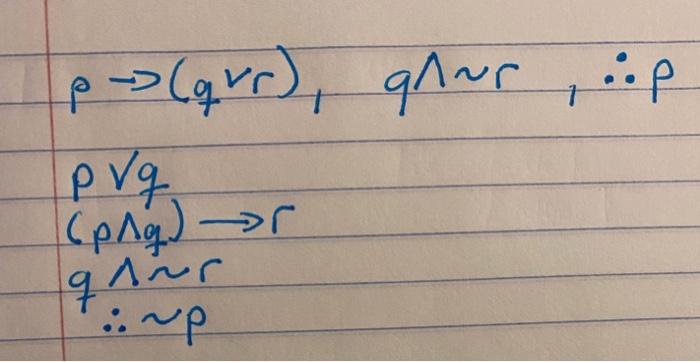 p → (q ∨ r), q ∧ ~r , ∴ p
p ∨ q
(p ∧ q) → r
q ∧ ~r
∴ ~p